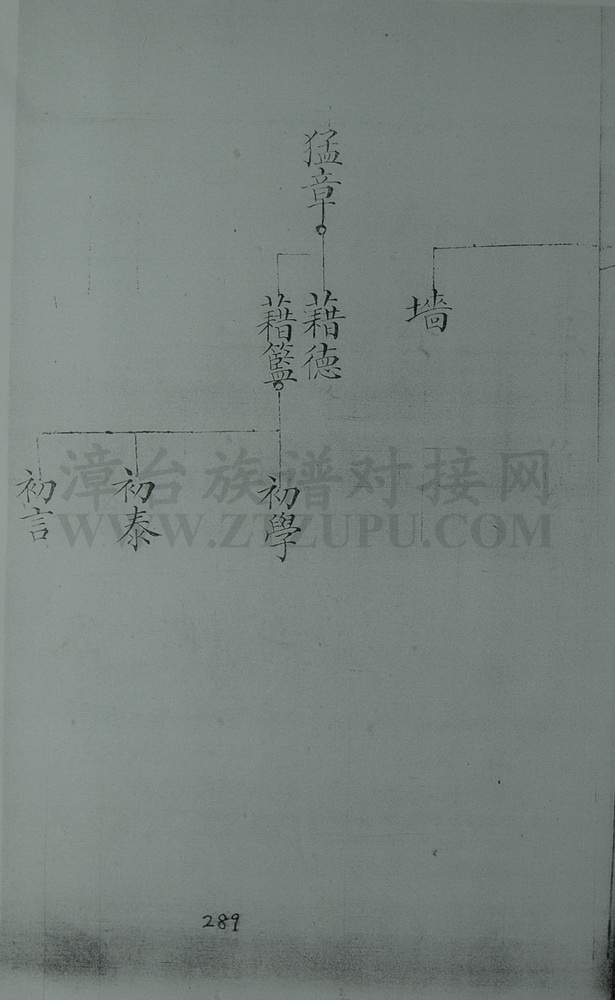 墻
猛章
藉德
藉籃
初學
初泰
初言
漳台族谱对接网
WWW.ZTZUPU.COM
289